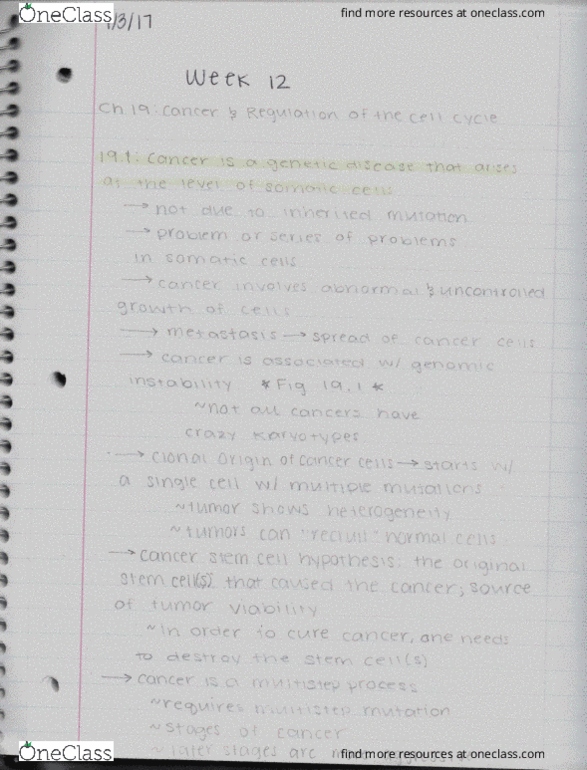 OneClass
find more resources at oneclass.com
/3/17
Week 12
Ch.19: Cancer & Regulation of the cell cycle
19.1: Cancer is a genetic disease that arises
at the level of somatic cells
→ not due to inherited mutation
→ problem or series of problems
in somatic cells
→ cancer involves abnormal & uncontrolled
growth of cells
→ metastasis → spread of cancer cells
→ cancer is associated w/ genomic
instability *Fig 19.1*
~not all cancers have
crazy karyotypes
→ clonal origin of cancer cells → starts w/
a single cell w/ multiple mutations
~tumor shows heterogeneity
~tumors can "recruit" normal cells
→ cancer stem cell hypothesis: the original
stem cell(s) that caused the cancer; source
of tumor viability
~in order to cure cancer, one needs
to destroy the stem cell(s)
→ cancer is a multistep process
~requires multistep mutation
~stages of cancer
~later stages are
OneClass
find more resources at oneclass.com